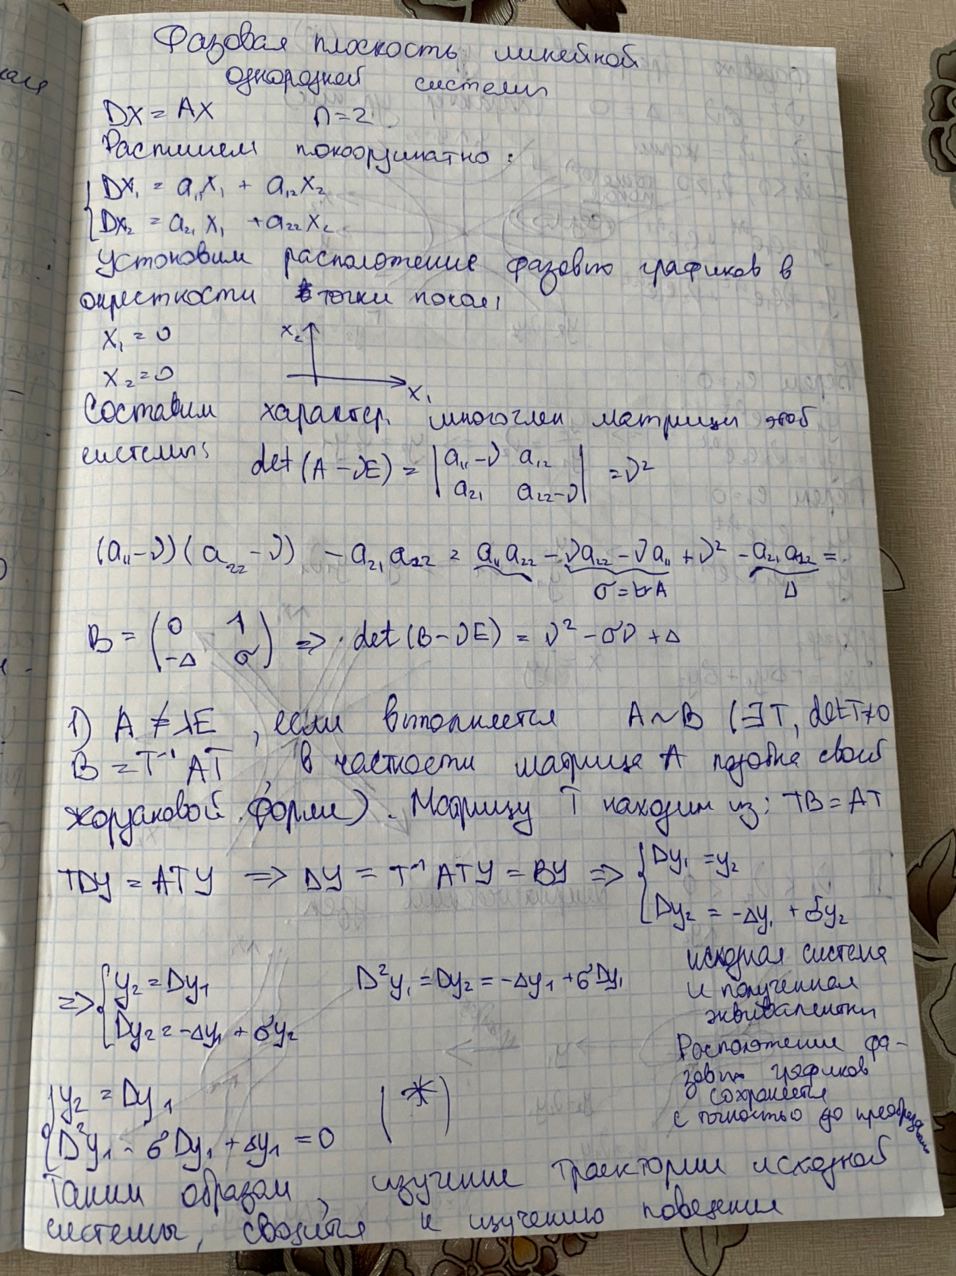 Фазовая плоскость линейной
однородной системы
DX = AX n=2
Распишем покоординатно:
{ Dx₁ = a₁₁x₁ + a₁₂x₂
Dx₂ = a₂₁x₁ + a₂₂x₂
Установим расположение фазовых графиков в
окрестности точки покоя,
x₁ = 0 x₂
x₂ = 0 x₁
Составим характер. многочлен матрицы этой
системы:
det(A - νE) = | a₁₁-ν a₁₂ | = ν²
a₂₁ a₂₂-ν
(a₁₁-ν)(a₂₂-ν) - a₂₁a₂₂ = a₁₁a₂₂ - νa₂₂ - νa₁₁ + ν² - a₂₁a₂₂ =
σ = trA Δ
B = ( 0 1 ) => det(B - νE) = ν² - σν + Δ
-Δ σ
1) A ≠ λE, если выполняется A ~ B (∃T, detT≠0
B = T⁻¹AT, в частности матрица A подобна своей
жордановой форме). Матрицу T находим из: TB = AT
TDY = ATY => DY = T⁻¹ATY = BY => { Dy₁ = y₂
Dy₂ = -Δy₁ + σy₂
=> { y₂ = Dy₁ D²y₁ = Dy₂ = -Δy₁ + σDy₁
Dy₂ = -Δy₁ + σy₂
исходная система
и полученная
эквивалентны
Расположение фа-
зовых графиков
сохраняется
с точностью до
{ y₂ = Dy₁ (*)
D²y₁ - σDy₁ + Δy₁ = 0
Таким образом, изучение траектории исходной
системы, сводится к изучению поведения